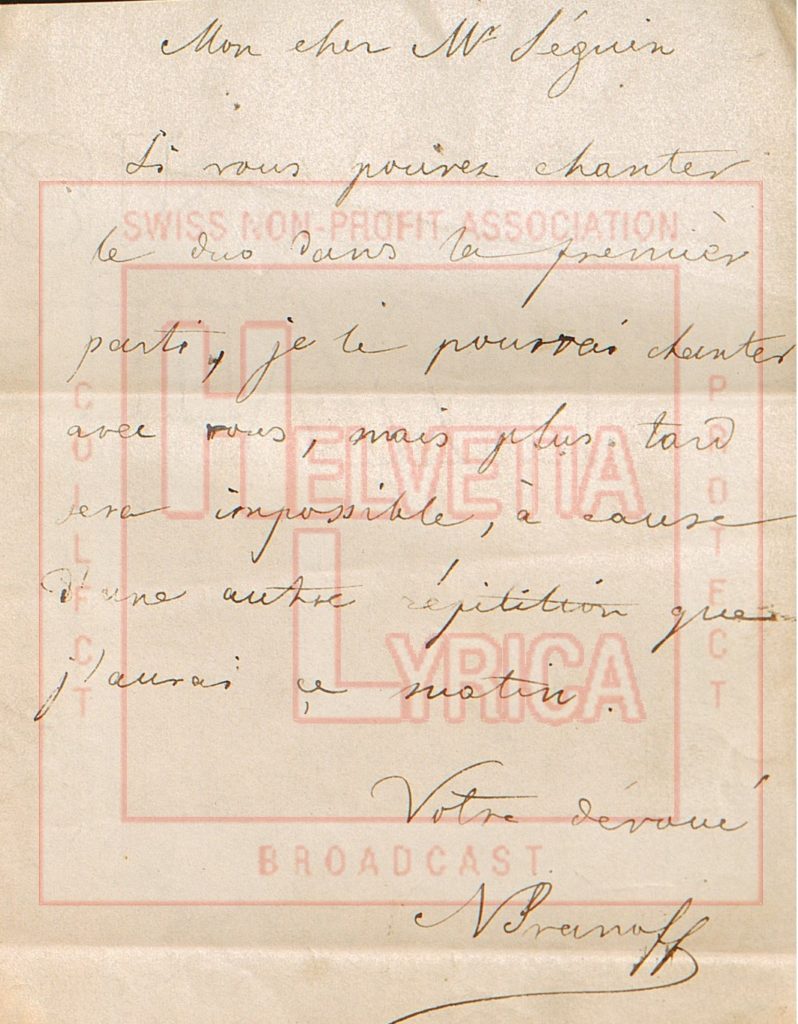 Mon cher Mr Séguin
Si vous pouvez chanter
SWISS NON-PROFIT ASSOCIATION
le duo dans la premièr
parti, je le pourrai chanter
avec vous, mais plus tard
HELVETIA
sera impossible, à cause
d'une autre répitition que
LYRICA
j'aurai çe matin.
COLLECT
PROTECT
Votre dévoué
BROADCAST